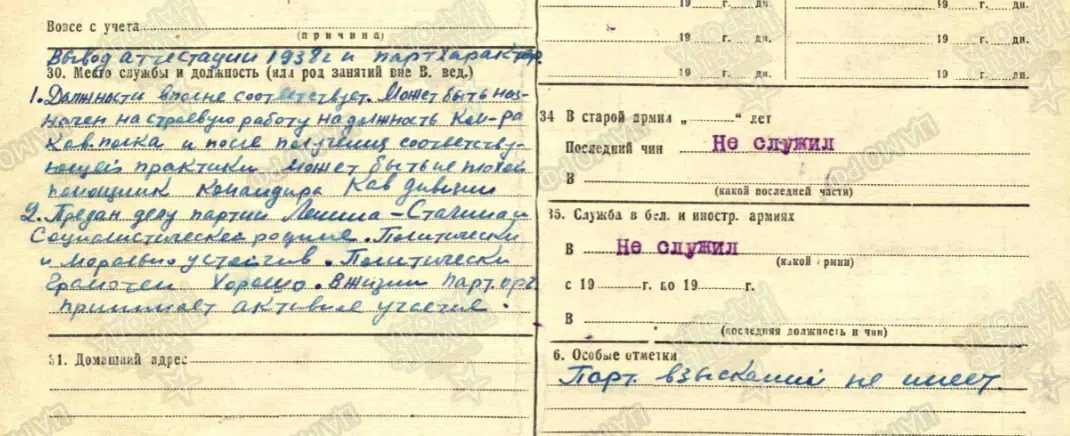 Вовсе с учета
(причина)
Вывод аттестации 1938г и партхарактер
30. Место службы и должность (или род занятий вне В. вед.)
1. Должности вполне соответствует. Может быть наз-
начен на строевую работу на должность Ком-ра
Кав. полка и после получения соответству-
ющей практики может быть
помощник Командира Кав дивизии
2. Предан делу партии Ленина – Сталина и
Социалистической родине. Политически
и морально устойчив. Политически
грамотен Хорошо. В жизни Парт. орг.
принимает активное участие.
31. Домашний адрес
19 г. дн. 19 г. дн.
19 г. дн. 19 г. дн.
19 г. дн. 19 г. дн.
34 В старой армии „ “ лет
Последний чин Не служил
В
(какой последней части)
35. Служба в бел. и иностр. армиях
В Не служил
(какой армии)
с 19 г. по 19 г.
В
(последняя должность и чин)
6. Особые отметки
Парт. взысканий не имеет.